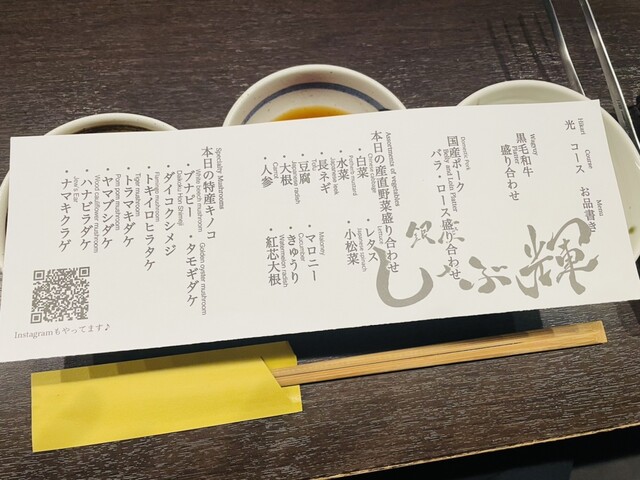 Hikari Course Menu
光 コース お品書き
Wagyu Platter
黒毛和牛
盛り合わせ
Domestic Pork
Belly and Loin Platter
国産ポーク
バラ・ロース盛り合わせ
Assortments of vegetables
本日の産直野菜盛り合わせ
Chinese cabbage
・白菜
Lettuce
・レタス
Potherb mustard
・水菜
Japanese spinach
・小松菜
Japanese leek
・長ネギ
Tofu
・豆腐
Malony
・マロニー
Japanese radish
・大根
Cucumber
・きゅうり
Carrot
・人参
Watermelon radish
・紅芯大根
Specialty Mushrooms
本日の特産キノコ
White beech mushroom
・ブナピー
Golden oyster mushroom
・タモギダケ
Daikoku Hon Shimeji
・ダイコクシメジ
Flamingo mushroom
・トキイロヒラタケ
Tiger mushroom
・トラマキダケ
Pom pom mushroom
・ヤマブシダケ
Wood cauliflower mushroom
・ハナビラダケ
Jew's Ear
・ナマキクラゲ
銀座
しゃぶ輝
Instagramもやってます♪